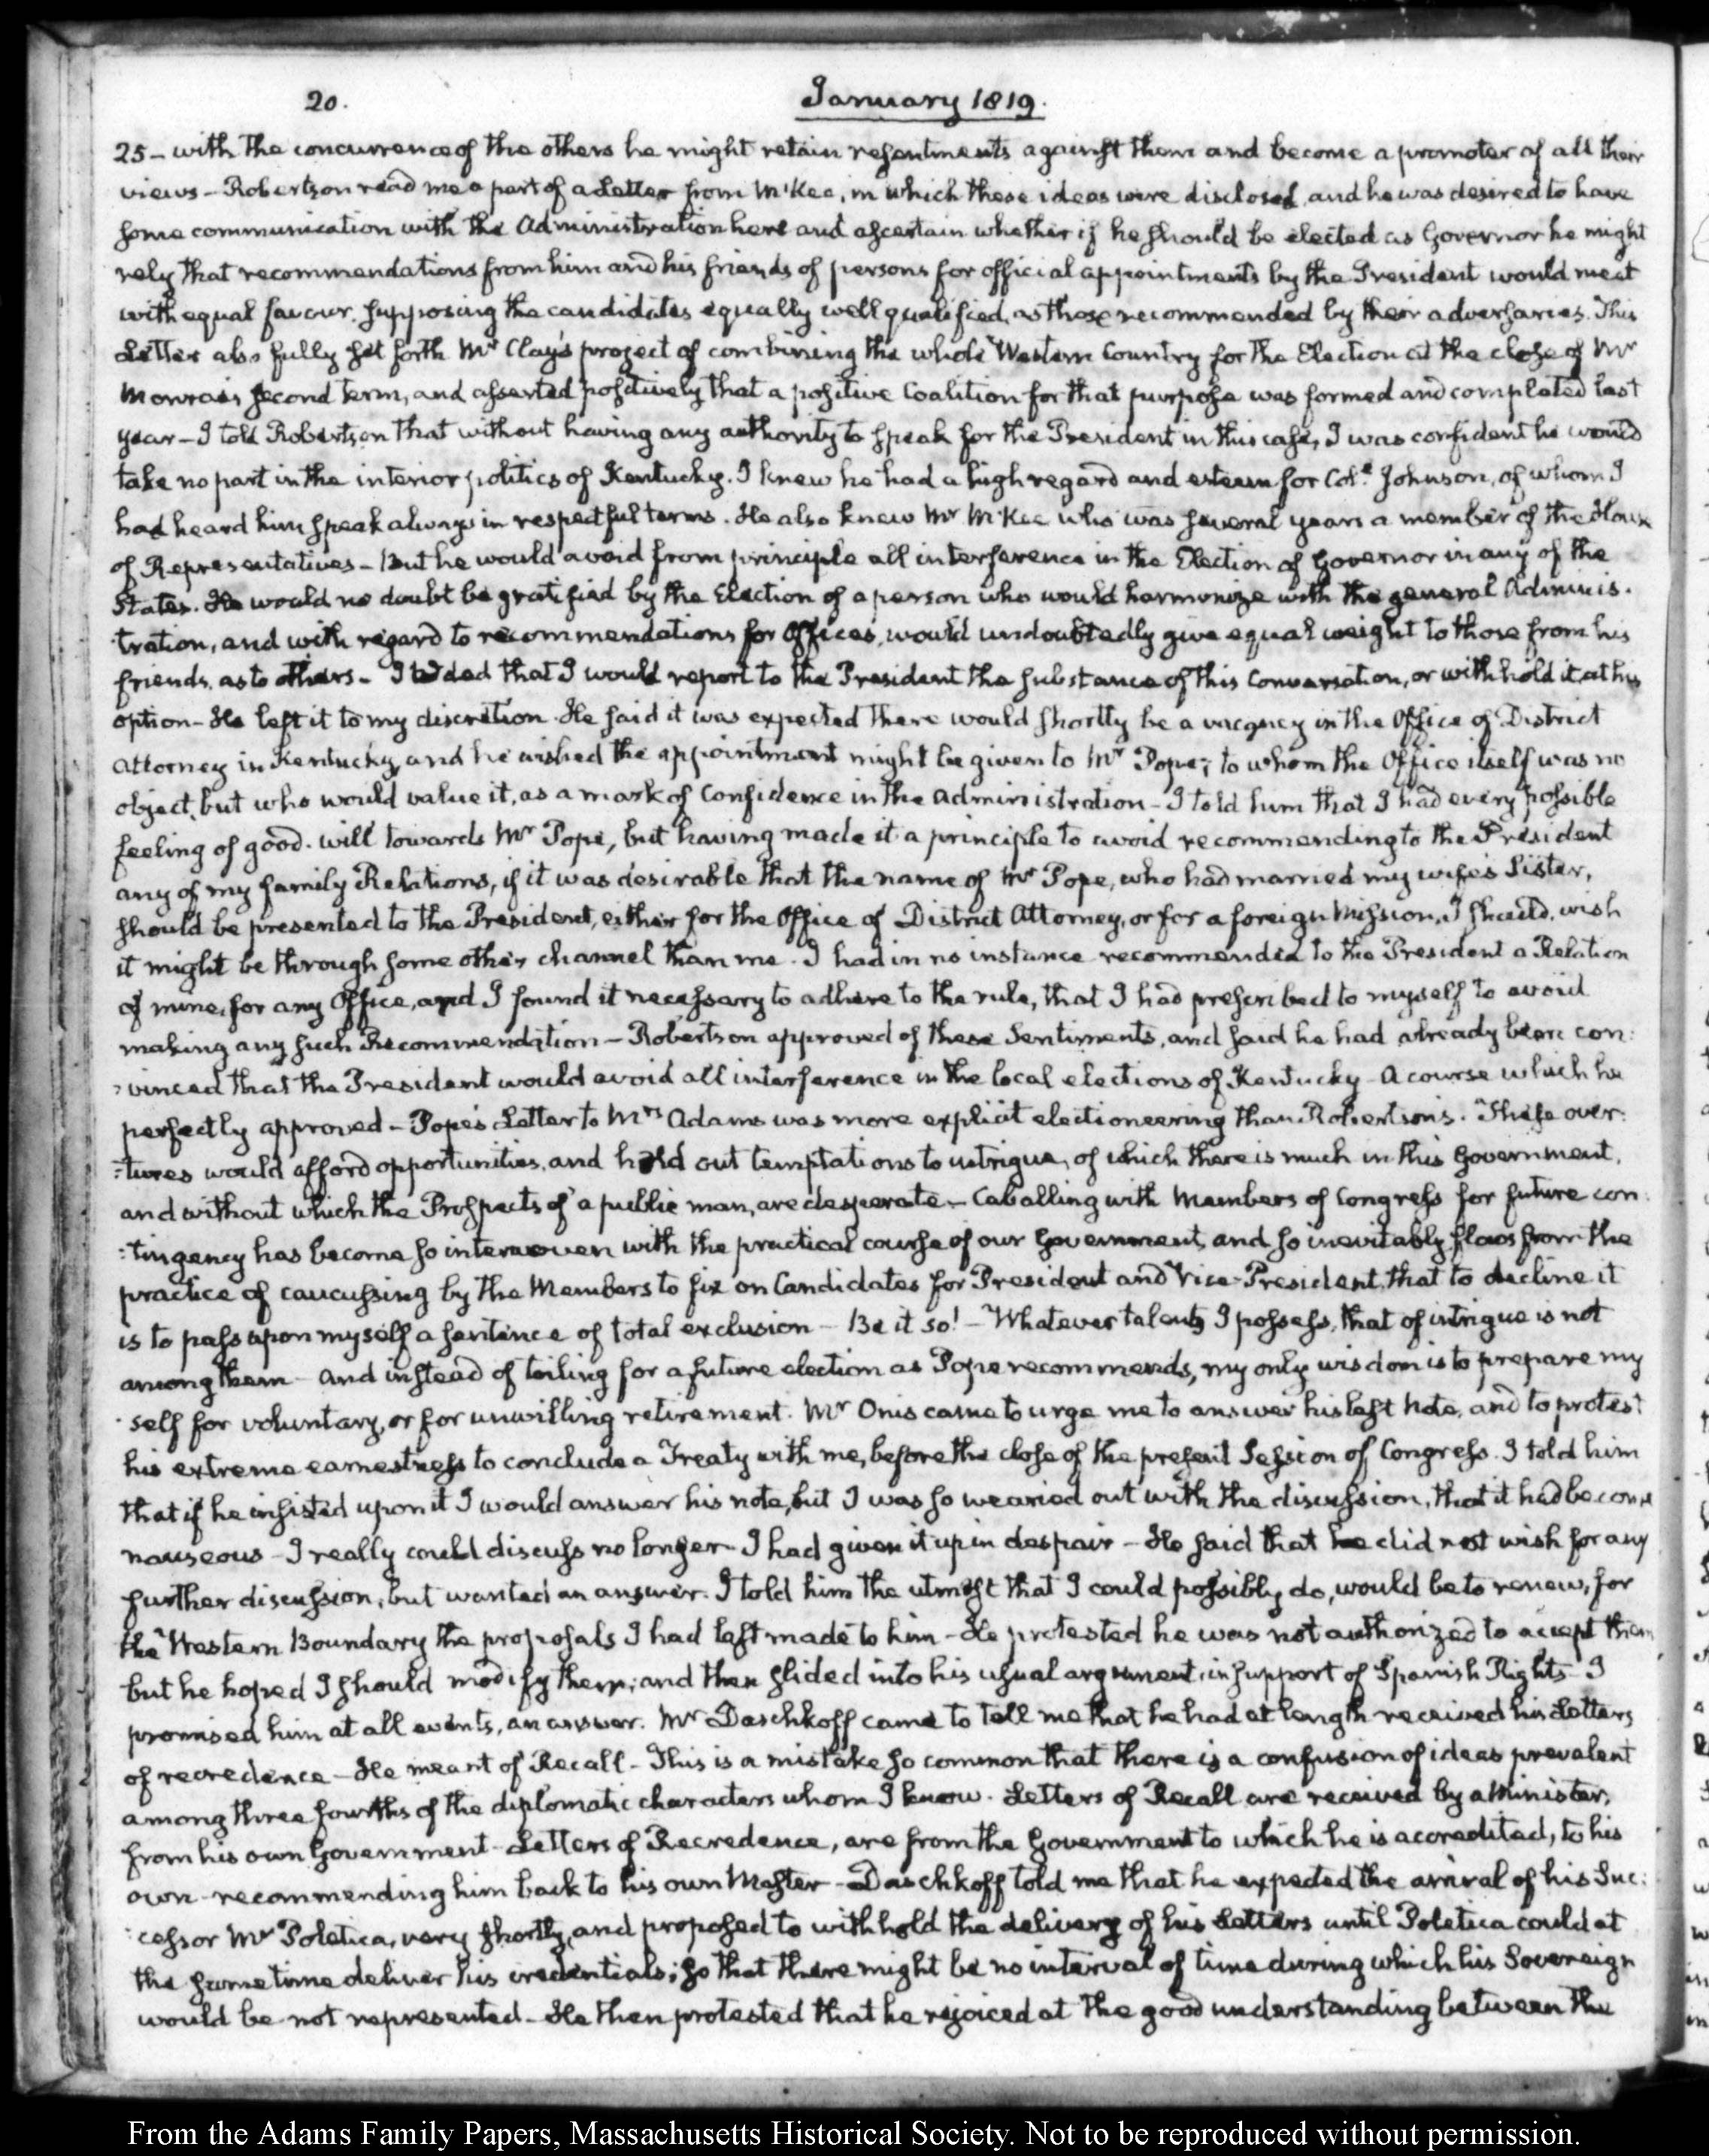 20.
January 1819.
25 – with the concurrence of the others he might retain resentments against them and become a promoter of all their
views – Robertson read me a part of a Letter from McKee, in which these ideas were disclosed, and he was desired to have
some communication with the Administration here and ascertain whether if he should be elected as Governor he might
rely that recommendations from him and his friends of persons for official appointments by the President would meet
with equal favour, supposing the candidates equally well qualified, as those recommended by their adversaries. This
Letter also fully set forth Mr Clay's project of combining the whole Western Country for the Election at the close of Mr
Monroe's second term, and asserted positively that a positive Coalition for that purpose was formed and completed last
year – I told Robertson that without having any authority to speak for the President in this case, I was confident he would
take no part in the interior politics of Kentucky. I knew he had a high regard and esteem for Coll. Johnson, of whom I
had heard him speak always in respectful terms. He also knew Mr McKee who was several years a member of the House
of Representatives – But he would avoid from principle all interference in the Election of Governor in any of the
States. He would no doubt be gratified by the Election of a person who would harmonize with the general Adminis-
tration, and with regard to recommendations for Offices, would undoubtedly give equal weight to those from his
friends, as to others – I added that I would report to the President the substance of this Conversation, or withhold it, at his
option – He left it to my discretion. He said it was expected there would shortly be a vacancy in the Office of District
Attorney in Kentucky, and he wished the appointment might be given to Mr Pope; to whom the Office itself was no
object, but who would value it, as a mark of Confidence in the Administration – I told him that I had every possible
feeling of good-will towards Mr Pope, but having made it a principle to avoid recommending to the President
any of my family Relations, if it was desirable that the name of Mr Pope, who had married my wife's Sister,
should be presented to the President, either for the Office of District Attorney, or for a foreign Mission, I should wish
it might be through some other channel than me. I had in no instance recommended to the President a Relation
of mine, for any Office, and I found it necessary to adhere to the rule, that I had prescribed to myself to avoid
making any such Recommendation – Robertson approved of these Sentiments, and said he had already been con:
:vinced that the President would avoid all interference in the local elections of Kentucky – A course which he
perfectly approved – Pope's Letter to Mrs Adams was more explicit electioneering than Robertson's. These over:
:tures would afford opportunities, and hold out temptations to intrigue, of which there is much in this Government,
and without which the Prospects of a public man, are desperate – Caballing with Members of Congress for future con:
:tingency has become so interwoven with the practical course of our Government, and so inevitably flows from the
practice of caucussing by the Members to fix on Candidates for President and Vice-President, that to decline it
is to pass upon myself a sentence of total exclusion – Be it so! – Whatever talents I possess, that of intrigue is not
among them – And instead of toiling for a future election as Pope recommends, my only wisdom is to prepare my
self for voluntary, or for unwilling retirement. Mr Onis came to urge me to answer his last Note, and to protest
his extreme earnestness to conclude a Treaty with me, before the close of the present Session of Congress. I told him
that if he insisted upon it I would answer his note, but I was so wearied out with the discussion, that it had become
nauseous – I really could discuss no longer – I had given it up in despair – He said that he did not wish for any
further discussion, but wanted an answer. I told him the utmost that I could possibly do, would be to renew, for
the Western Boundary the proposals I had last made to him – He protested he was not authorized to accept them
but he hoped I should modify them; and then slided into his usual argument, in support of Spanish Rights – I
promised him at all events, an answer. Mr Daschkoff came to tell me that he had at length received his Letters
of recredence – He meant of Recall – This is a mistake so common that there is a confusion of ideas prevalent
among three fourths of the diplomatic characters whom I know. Letters of Recall are received by a Minister,
from his own Government – Letters of Recredence, are from the Government to which he is accredited, to his
own – recommending him back to his own Master – Daschkoff told me that he expected the arrival of his Suc:
:cessor Mr Poletica, very shortly, and proposed to withhold the delivery of his Letters until Poletica could at
the same time deliver his credentials; so that there might be no interval of time during which his Sovereign
would be not represented – He then protested that he rejoiced at the good understanding between the
From the Adams Family Papers, Massachusetts Historical Society. Not to be reproduced without permission.